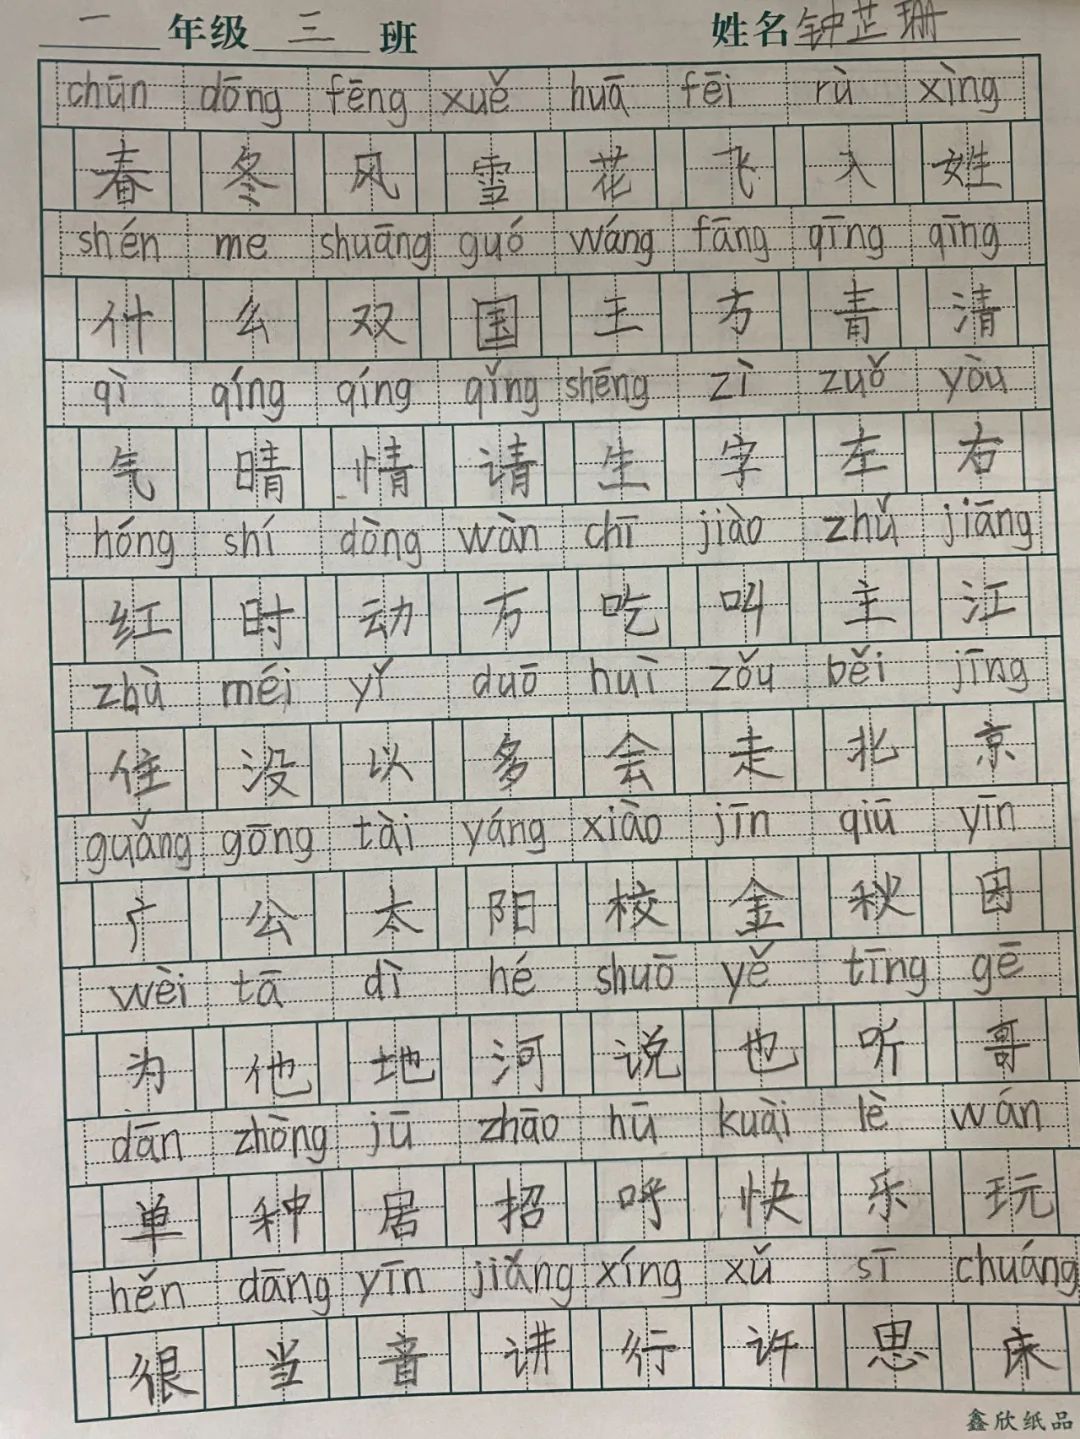 一年级三班 姓名钟芷珊
chūn dōng fēng xuě huā fēi rù xìng
春 冬 风 雪 花 飞 入 姓
shén me shuāng guó wáng fāng qīng qīng
什 么 双 国 王 方 青 清
qì qíng qíng qǐng shēng zì zuǒ yòu
气 晴 情 请 生 字 左 右
hóng shí dòng wàn chī jiào zhǔ jiāng
红 时 动 万 吃 叫 主 江
zhù méi yǐ duō huì zǒu běi jīng
住 没 以 多 会 走 北 京
guǎng gōng tài yáng xiào jīn qiū yīn
广 公 太 阳 校 金 秋 因
wèi tā dì hé shuō yě tīng gē
为 他 地 河 说 也 听 哥
dān zhòng jū zhāo hū kuài lè wán
单 种 居 招 呼 快 乐 玩
hěn dāng yīn jiǎng xíng xǔ sī chuáng
很 当 音 讲 行 许 思 床
鑫欣纸品